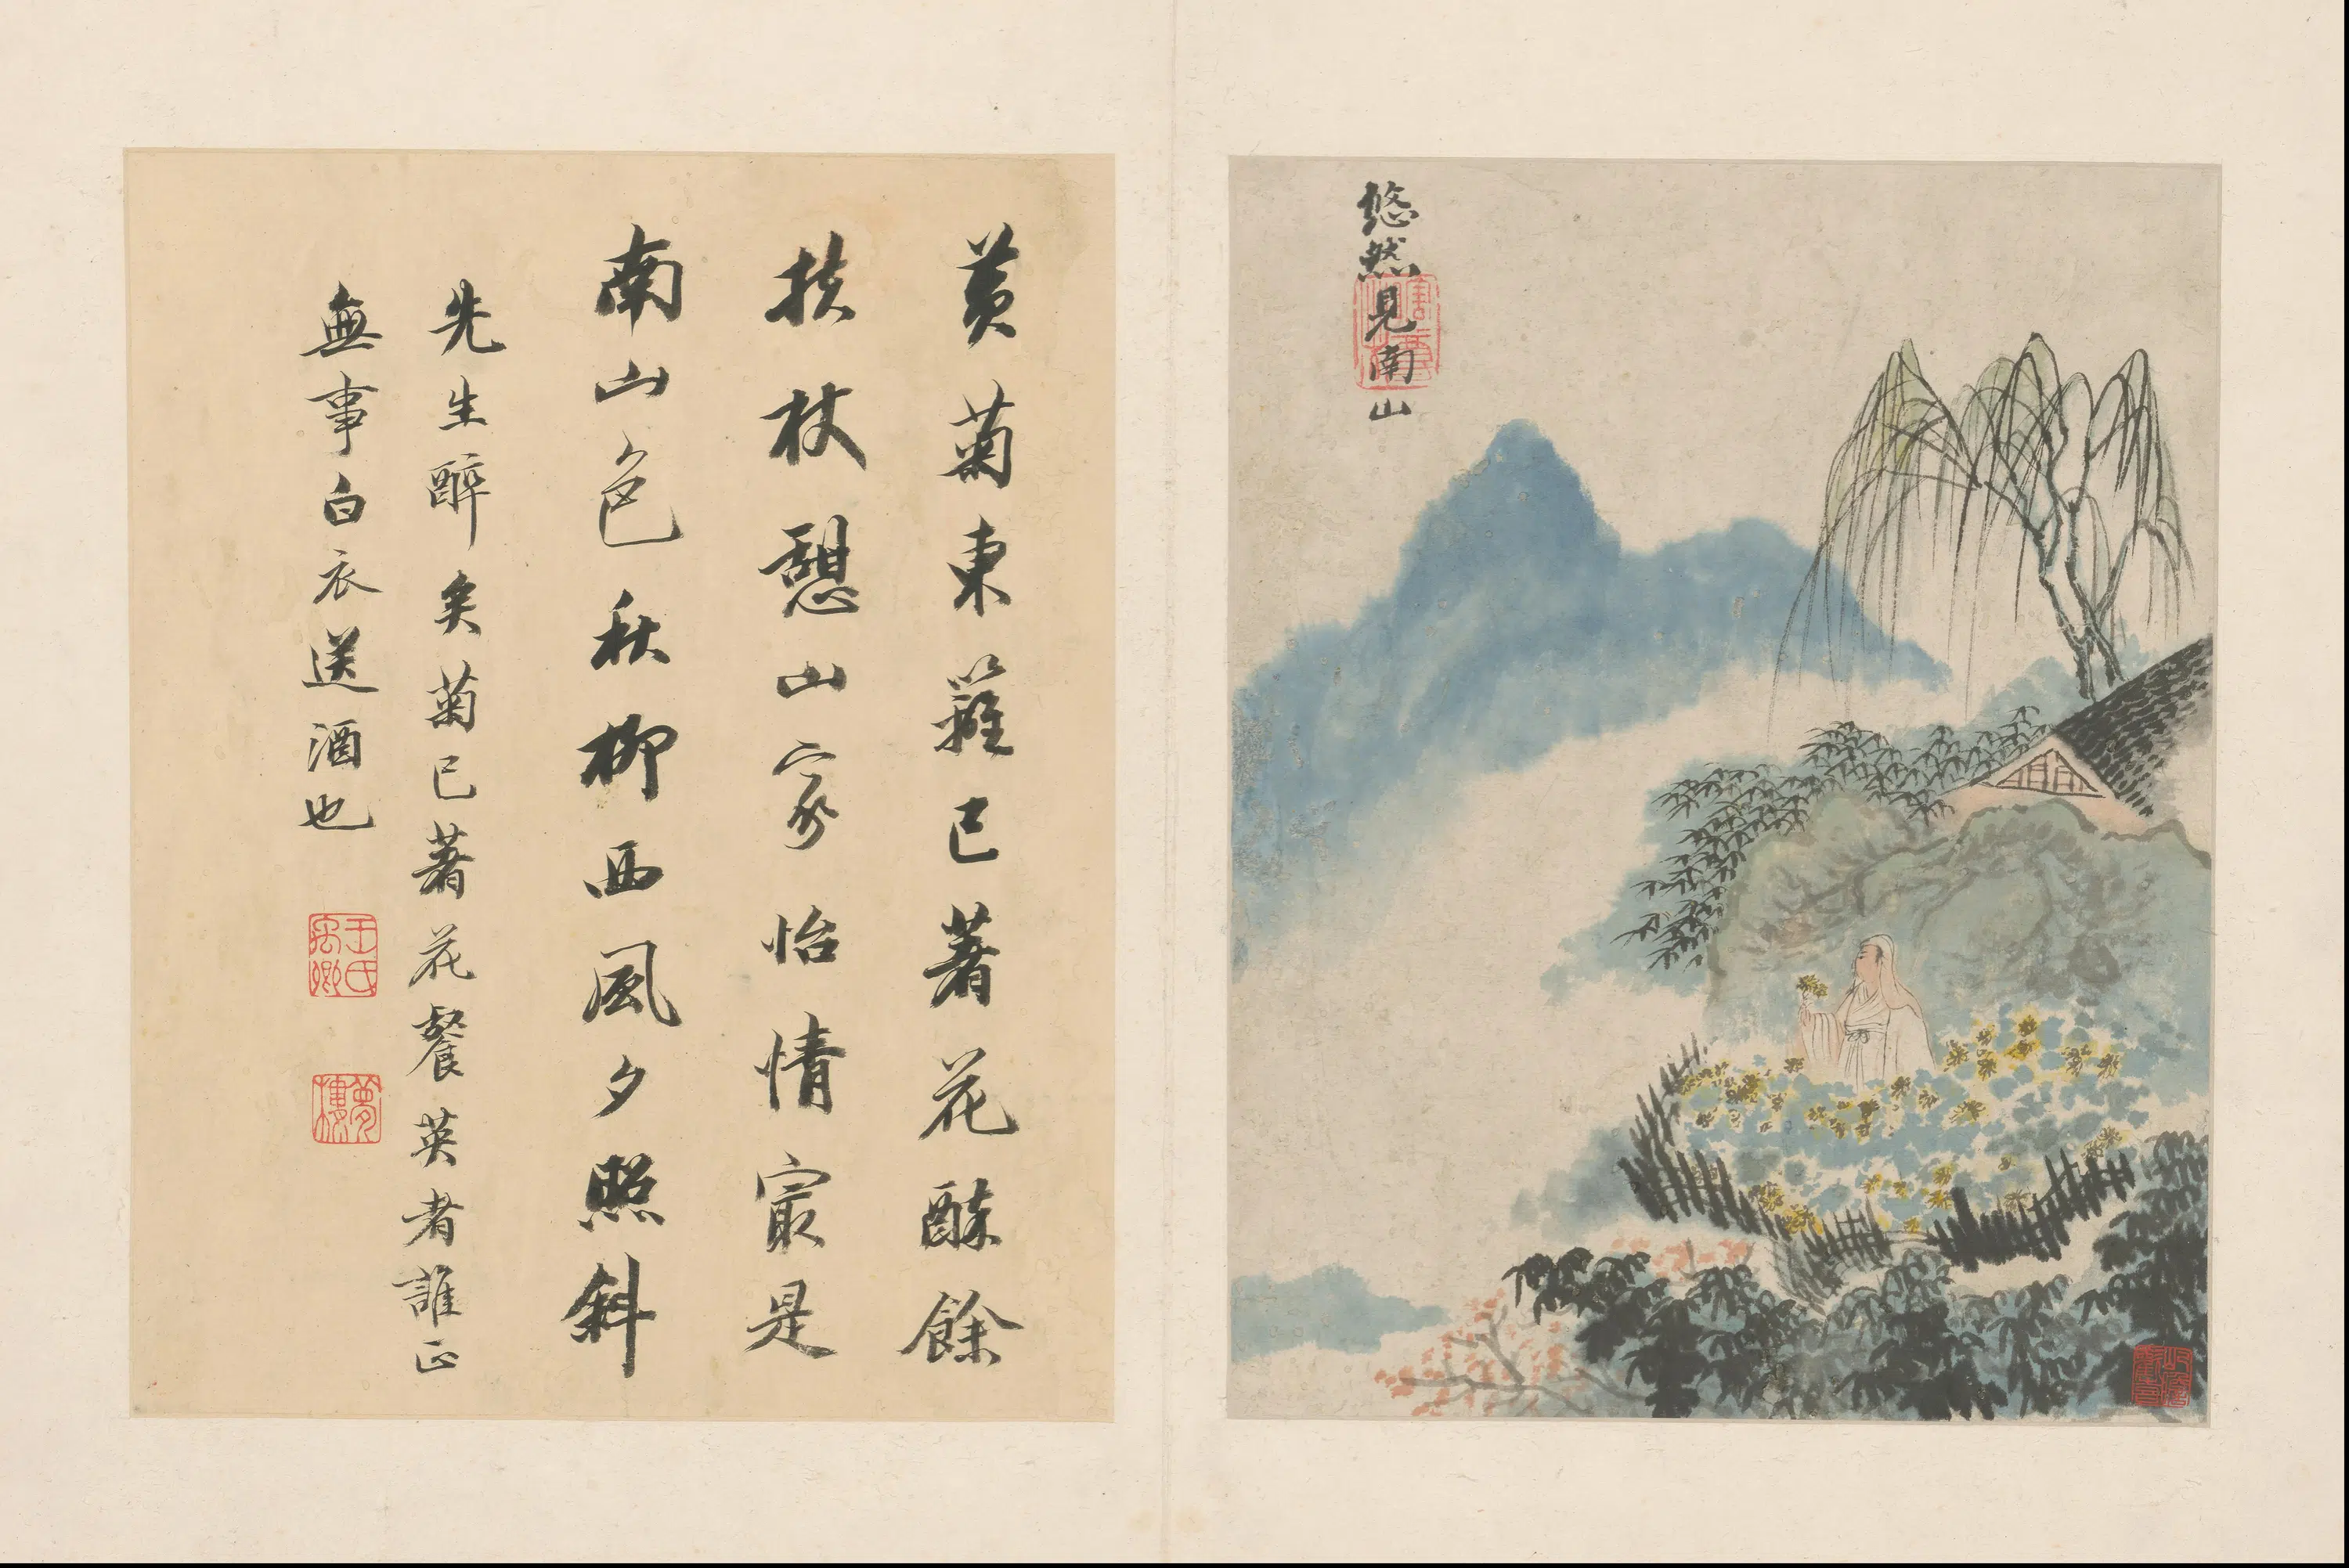 悠然見南山
黃菊東籬已著花酥餘
扶杖憇山家怡情㝡是
南山色秋柳西風夕照斜
先生醉矣菊已著花餐英者誰正
無事白衣送酒也
王氏禹卿
夢樓